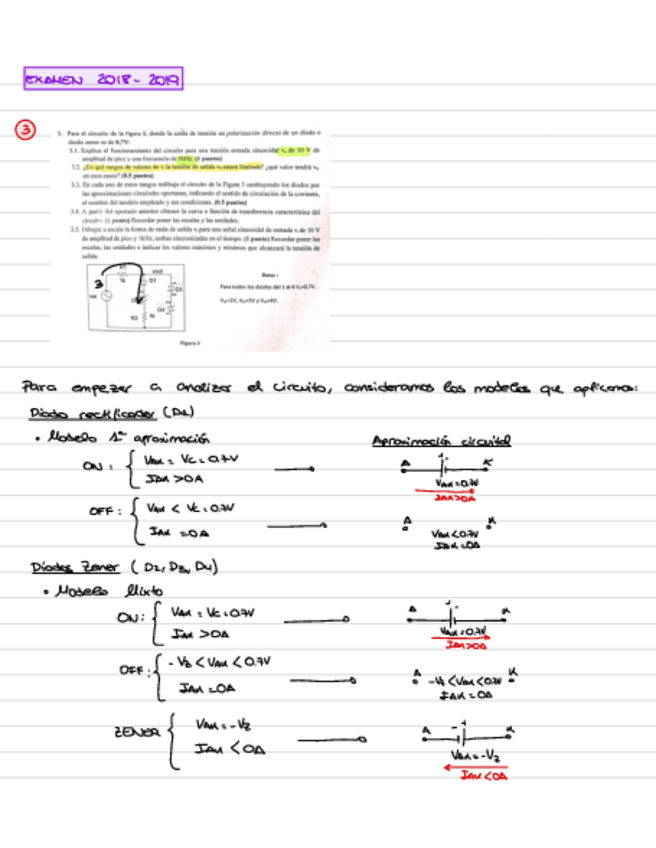 EXAMEN 2018-2019
3
3. Para el circuito de la Figura 3, donde la caída de tensión en polarización directa de un diodo o
diodo zener es de 0,7V:
3.1. Explica el funcionamiento del circuito para una tensión entrada sinusoidal vₑ de 10 V de
amplitud de pico y una frecuencia de 1kHz. (1 puntos)
3.2. ¿En qué rangos de valores de vₑ la tensión de salida vₒ estará limitada? ¿qué valor tendrá vₒ
en esos casos? (0.5 puntos)
3.3. En cada uno de estos rangos redibuja el circuito de la Figura 3 sustituyendo los diodos por
las aproximaciones circuitales oportunas, indicando el sentido de circulación de la corriente,
el nombre del modelo empleado y sus condiciones. (0.5 puntos)
3.4. A partir del apartado anterior obtener la curva o función de transferencia característica del
circuito. (1 punto) Recordar poner las escalas y las unidades.
3.5. Dibujar a escala la forma de onda de salida vₒ para una señal sinusoidal de entrada vₑ de 10 V
de amplitud de pico y 1kHz, ambas sincronizadas en el tiempo. (1 punto) Recordar poner las
escalas, las unidades e indicar los valores máximos y mínimos que alcanzará la tensión de
salida.
vout
1k D1
3
D3
D4
R2 1k
Datos:
Para todos los diodos del 1 al 4
Figura 3
Para empezar a analizar el circuito, consideramos los modelos que aplicamos:
Diodo rectificador (D1)
• Modelo 1ª aproximación
Aproximación circuital
ON: VAK = VC = 0.7V
IAK > 0A
A + - K
VAK = 0.7V
IAK > 0A
OFF: VAK < VC = 0.7V
IAK = 0A
A K
VAK < 0.7V
IAK = 0A
Diodos Zener (D2, D3, D4)
• Modelo Mixto
ON: VAK = VC = 0.7V
IAK > 0A
A + - K
VAK = 0.7V
IAK > 0A
OFF: -VZ < VAK < 0.7V
IAK = 0A
A -VZ < VAK < 0.7V K
IAK = 0A
ZENER VAK = -VZ
IAK < 0A
A - + K
VAK = -VZ
IAK < 0A